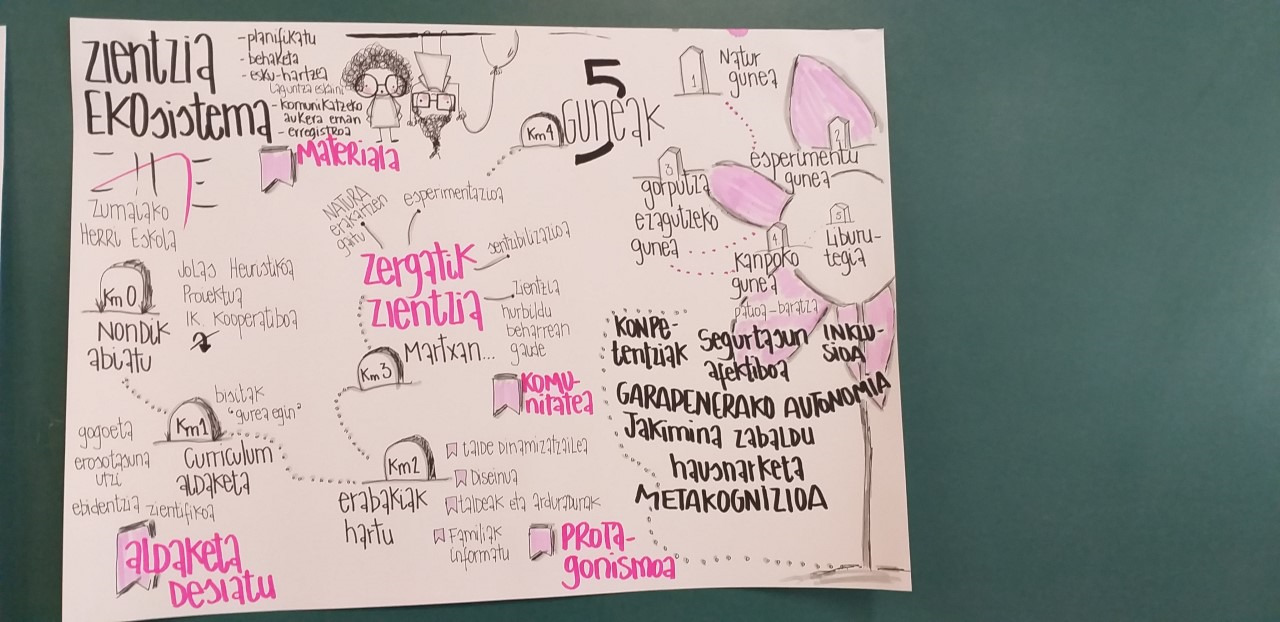 Zientzia
EKOsistema
-planifikatu
-behaketa
-esku-hartzea
Laguntza eskaini
-komunikatzeko
aukera eman
-erregistroa
Materiala
Zumaiako
Herri Eskola
Km0
Nondik
abiatu
Jolas Heuristikoa
Proiektua
IK. Kooperatiboa
Km1
Curriculum
aldaketa
bisitak
"gurea egin"
gogoeta
erosotasuna
utzi
ebidentzia zientifikoa
aldaketa
Desiatu
Km2
erabakiak
hartu
talde Dinamizatzailea
Diseinua
taldeak eta arduradunak
Familiak
informatu
PROTA-
gonismoa
Km3
Martxan...
Zergatik
zientzia
NATURA
erakartzen
gaitu
esperimentazioa
sentsibilizazioa
Zientzia
hurbildu
beharrean
gaude
KOMU-
nitatea
Km4
5
Guneak
1
Natur
gunea
2
esperimentu
gunea
3
gorputza
ezagutzeko
gunea
4
Kanpoko
gunea
patioa-baratza
5
Liburu-
tegia
KONPE-
tentziak
Segurtasun
afektiboa
INKLU-
SIOA
GARAPENERAKO AUTONOMIA
Jakimina zabaldu
hausnarketa
METAKOGNIZIOA